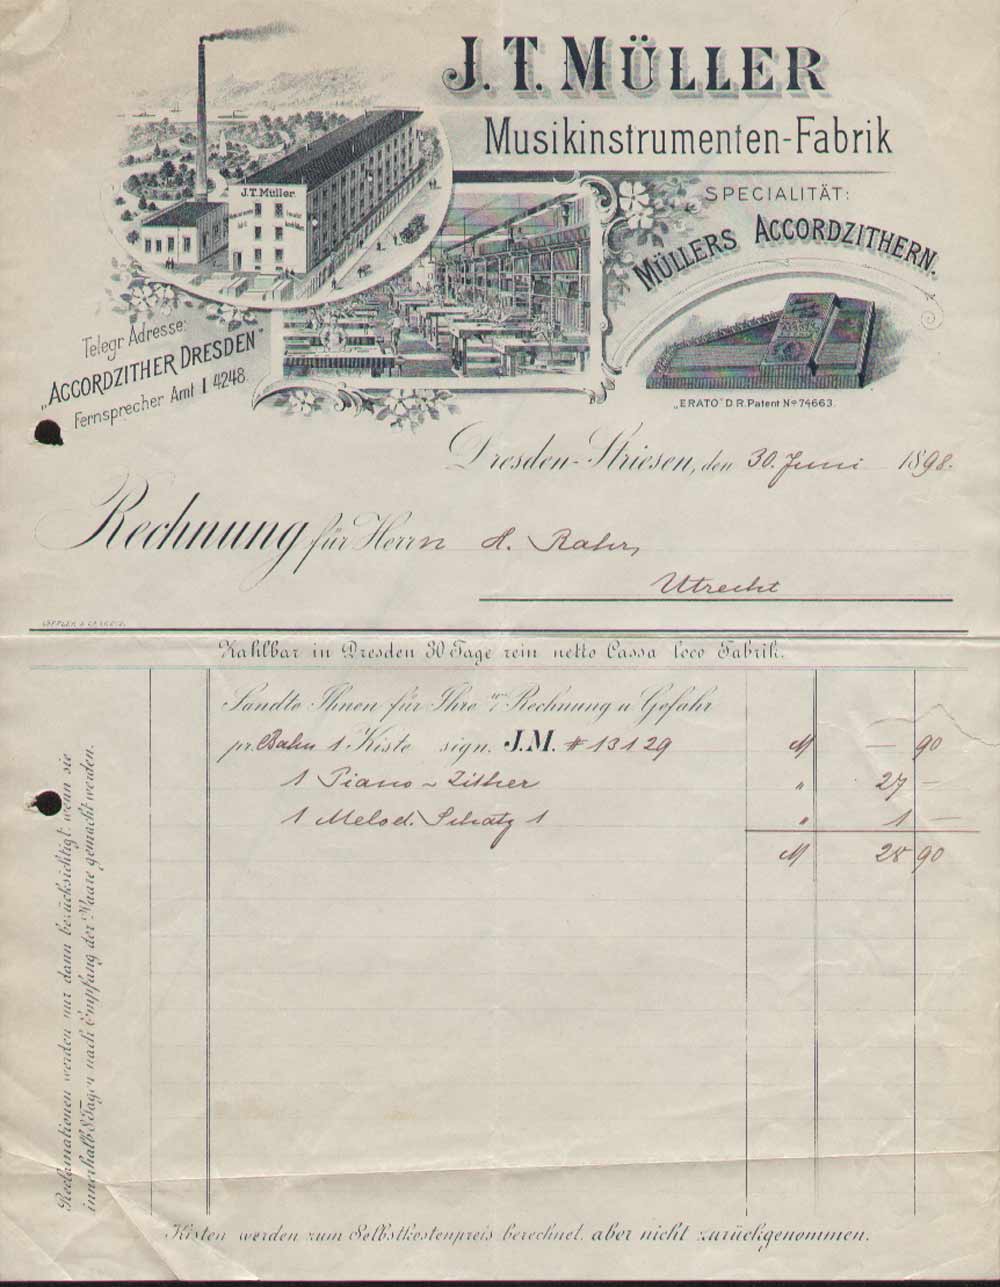 J. T. MÜLLER
Musikinstrumenten-Fabrik
SPECIALITÄT:
MÜLLERS ACCORDZITHERN.
J.T.Müller.
Telegr. Adresse:
„ACCORDZITHER DRESDEN"
Fernsprecher Amt I 4248.
„ERATO" D.R. Patent No 74663.
Dresden-Striesen, den 30. Juni 1898.
Rechnung für Herrn H. Rahr,
Utrecht
Zahlbar in Dresden 30 Tage rein netto Cassa loco Fabrik.
Sandte Ihnen für Ihre Rechnung u Gefahr
pr. Bahn 1 Kiste sign. J.M. # 13129 M — 90
1 Piano-Zither " 27 —
1 Melod. Schatz 1 " 1 —
M 28 90
Reclamationen werden nur dann berücksichtigt, wenn sie
innerhalb 8 Tagen nach Empfang der Waare gemacht werden.
Kisten werden zum Selbstkostenpreis berechnet, aber nicht zurückgenommen.